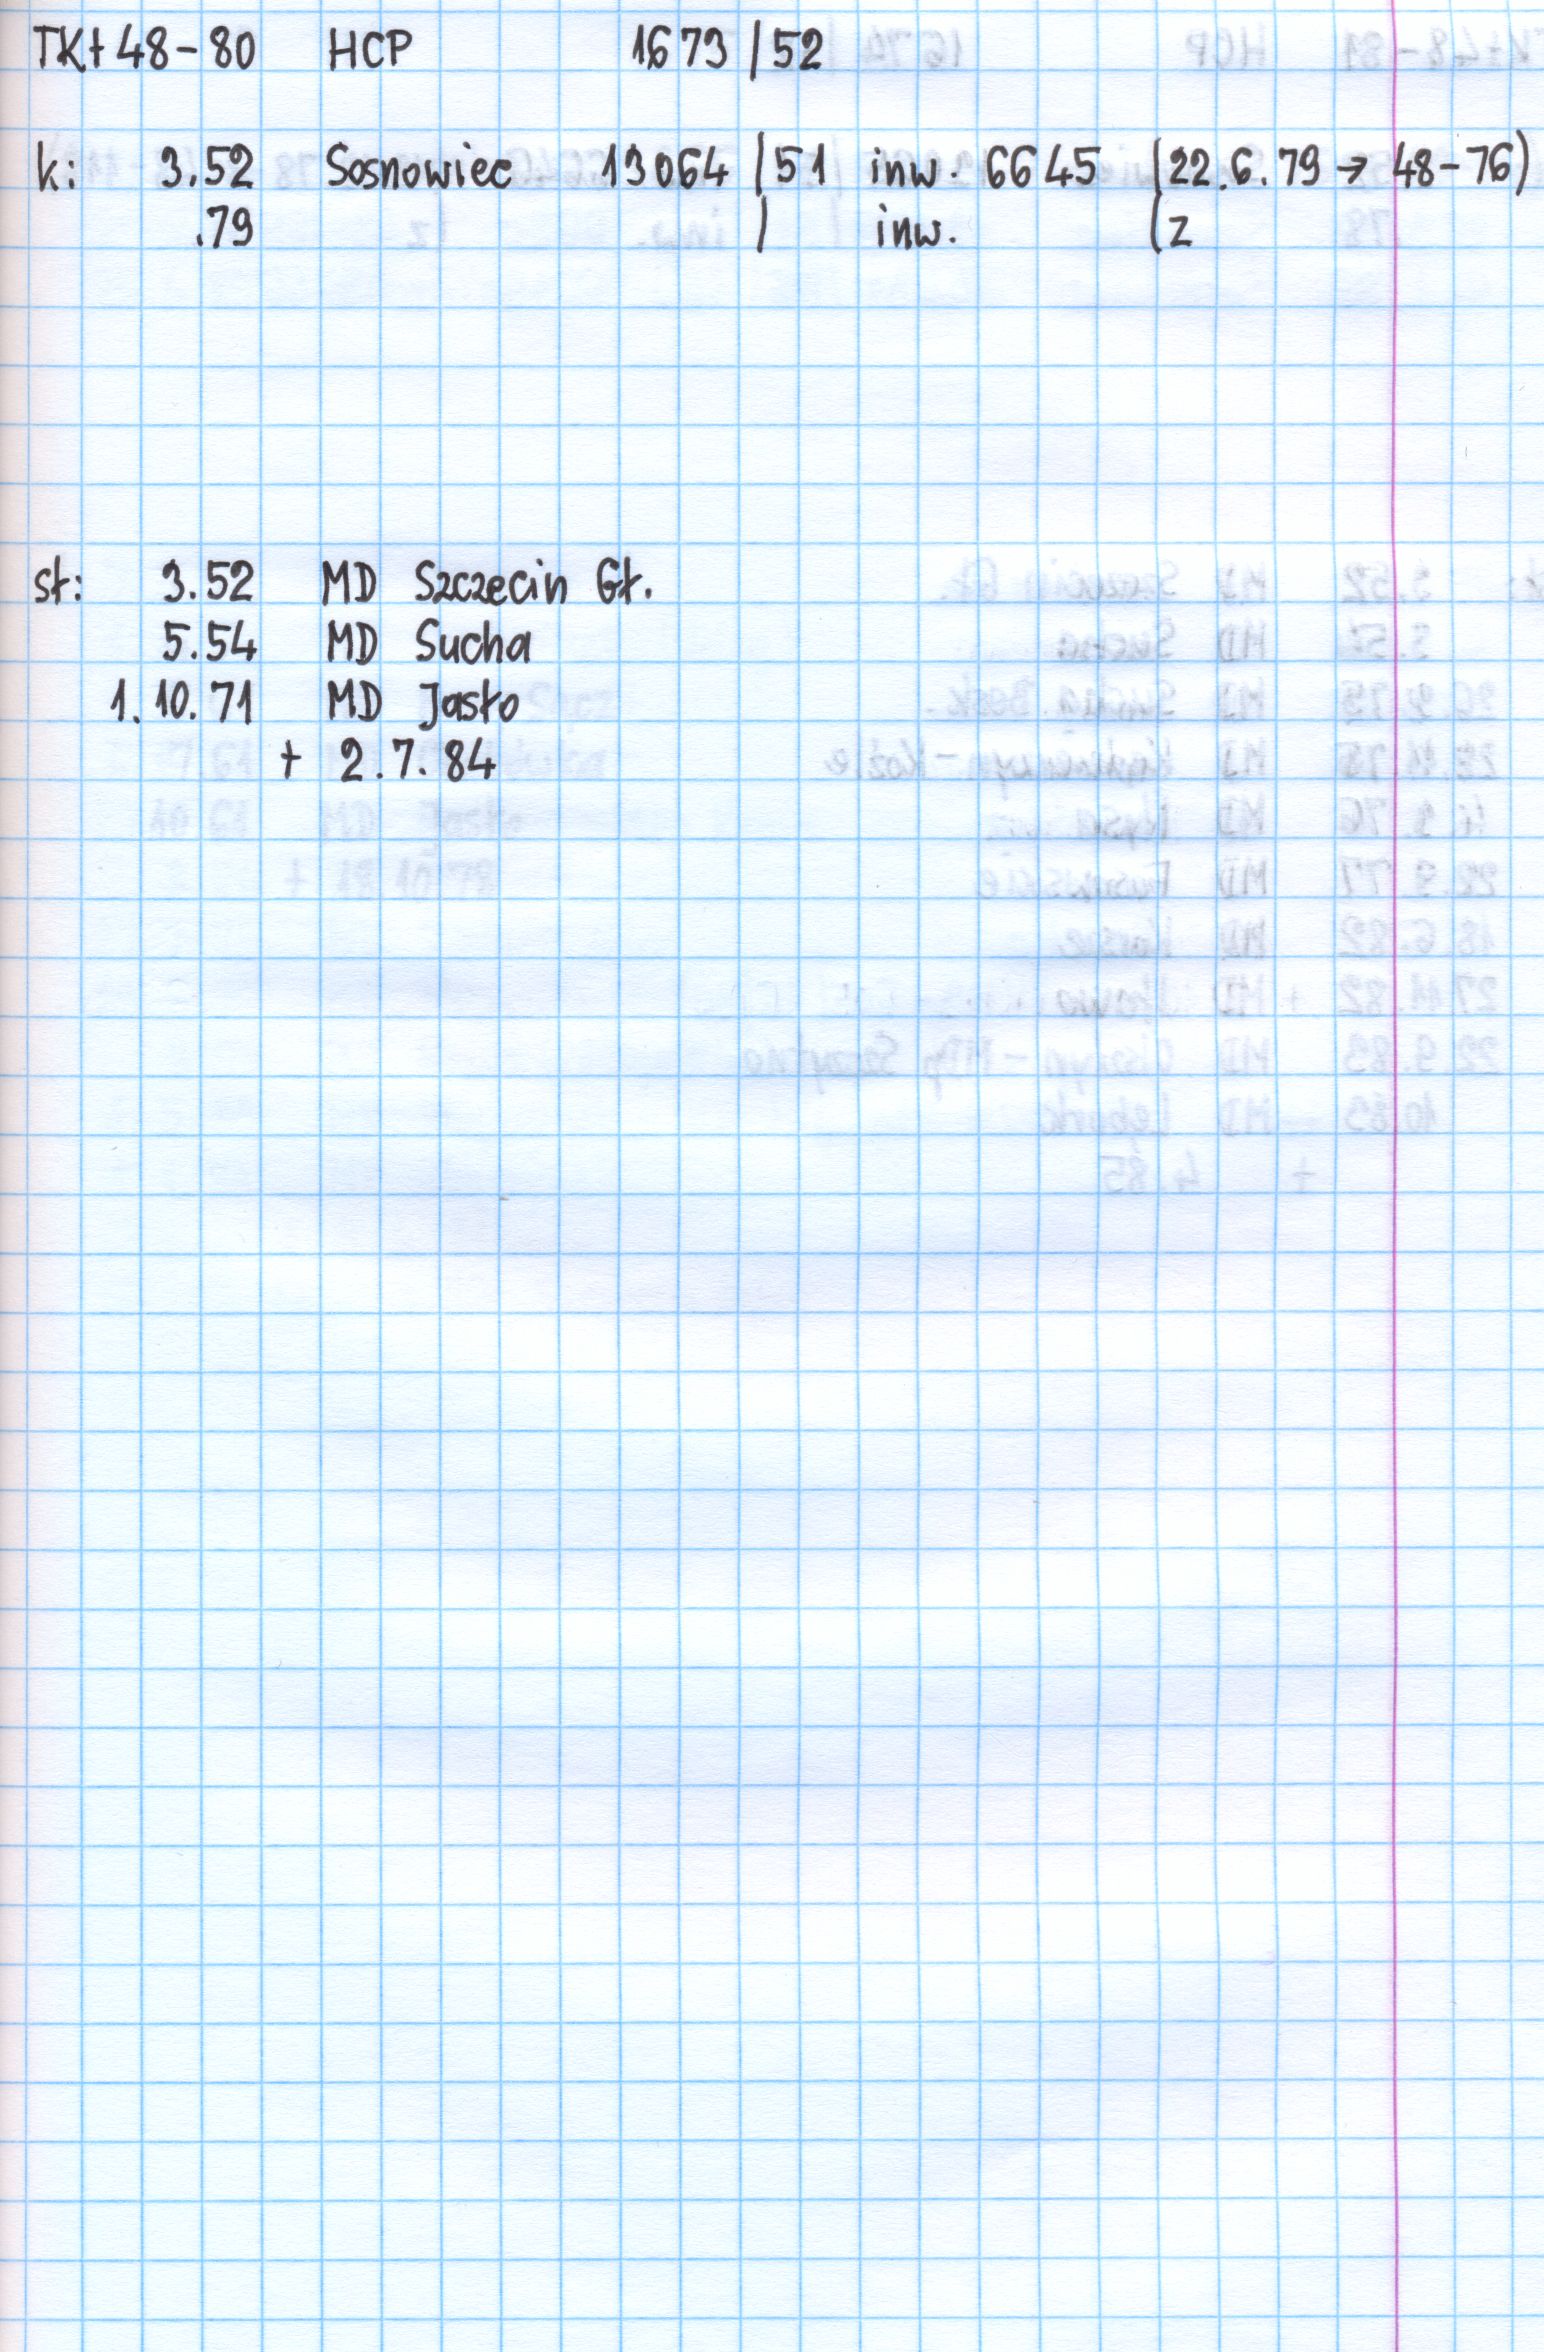 TKt 48-80 HCP 1673/52
k: 3.52 Sosnowiec 13064/51 inw. 6645 (22.6.79 → 48-76)
.79 / inw. (z
st: 3.52 MD Szczecin Gł.
5.54 MD Sucha
1.10.71 MD Jasło
+ 2.7.84